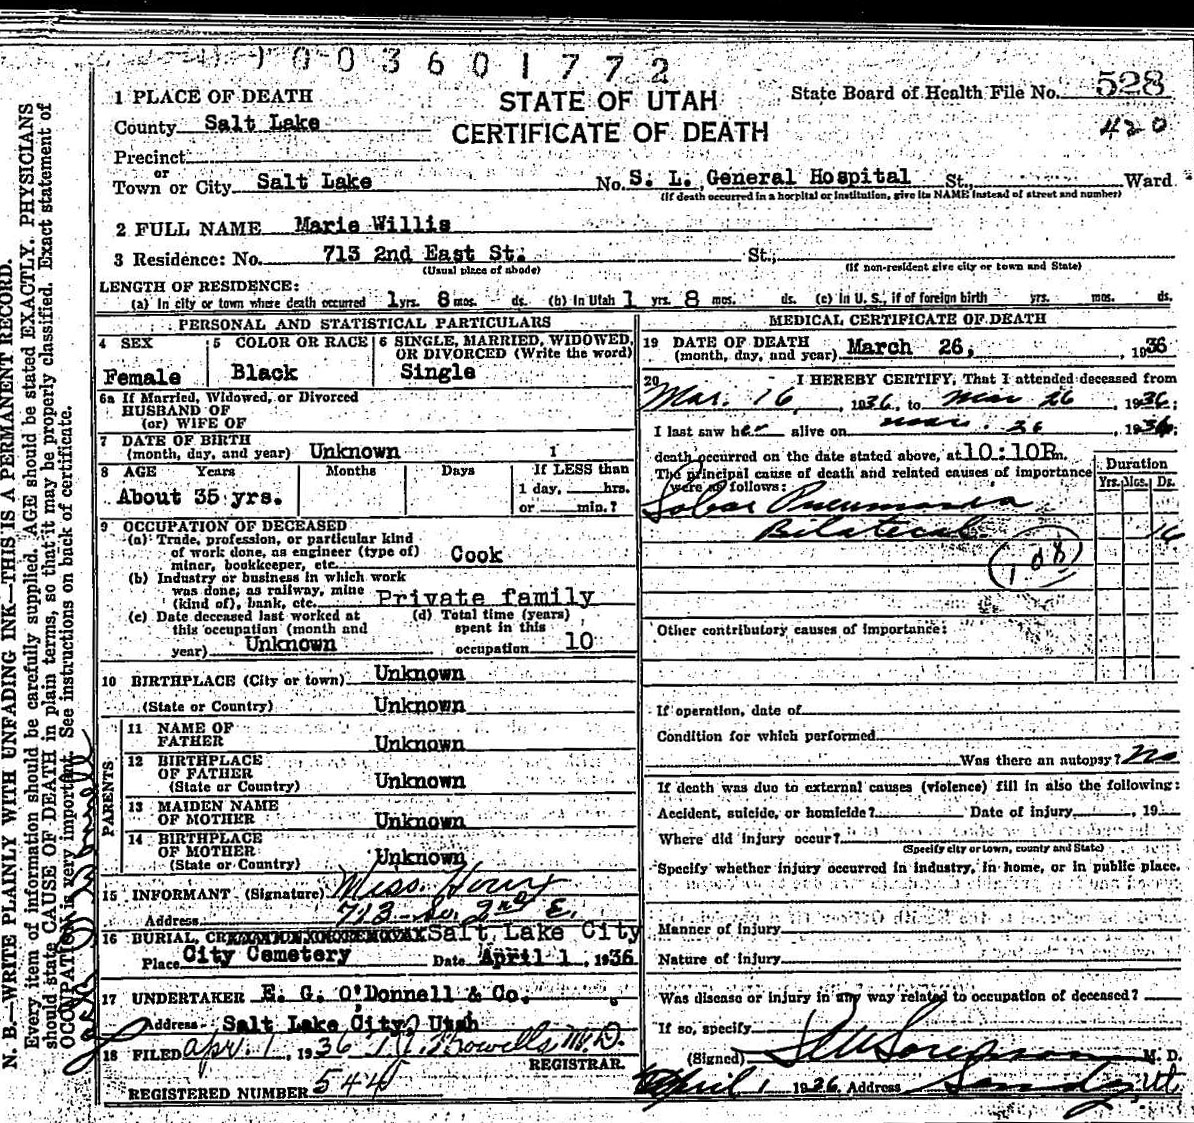 1003601772
1 PLACE OF DEATH
STATE OF UTAH
State Board of Health File No. 528
County Salt Lake
CERTIFICATE OF DEATH
420
Precinct
or
Town or City Salt Lake No. S. L. General Hospital St., Ward
(If death occurred in a hospital or institution, give its NAME instead of street and number)
2 FULL NAME Marie Willis
3 Residence: No. 713 2nd East St. St.,
(Usual place of abode) (If non-resident give city or town and State)
LENGTH OF RESIDENCE:
(a) In city or town where death occurred 1 yrs. 8 mos. ds. (b) In Utah 1 yrs. 8 mos. ds. (c) In U. S., if of foreign birth yrs. mos. ds.
PERSONAL AND STATISTICAL PARTICULARS
4 SEX
Female
5 COLOR OR RACE
Black
6 SINGLE, MARRIED, WIDOWED,
OR DIVORCED (Write the word)
Single
6a If Married, Widowed, or Divorced
HUSBAND OF
(or) WIFE OF
7 DATE OF BIRTH
(month, day, and year) Unknown 1
8 AGE Years Months Days If LESS than
About 35 yrs. 1 day, hrs.
or min.?
9 OCCUPATION OF DECEASED
(a) Trade, profession, or particular kind
of work done, as engineer (type of)
miner, bookkeeper, etc. Cook
(b) Industry or business in which work
was done, as railway, mine
(kind of), bank, etc. Private family
(c) Date deceased last worked at
this occupation (month and
year) Unknown
(d) Total time (years)
spent in this
occupation 10
10 BIRTHPLACE (City or town) Unknown
(State or Country) Unknown
PARENTS
11 NAME OF
FATHER Unknown
12 BIRTHPLACE
OF FATHER
(State or Country) Unknown
13 MAIDEN NAME
OF MOTHER Unknown
14 BIRTHPLACE
OF MOTHER
(State or Country) Unknown
15 INFORMANT (Signature) Miss.
Address 713 So. 2nd E.
16 BURIAL, Salt Lake City
Place City Cemetery Date April 1, 1936
17 UNDERTAKER E. G. O'Donnell & Co.
Address Salt Lake City, Utah
18 FILED Apr. 1, 1936 M. D.
REGISTRAR.
REGISTERED NUMBER 544
MEDICAL CERTIFICATE OF DEATH
19 DATE OF DEATH
(month, day, and year) March 26, , 1936
20 I HEREBY CERTIFY, That I attended deceased from
Mar. 16, 1936, to Mar 26, 1936;
I last saw her alive on Mar. 26, 1936;
death occurred on the date stated above, at 10:10P.m.
The principal cause of death and related causes of importance
were as follows:
Duration
Yrs. Mos. Ds.
Lobar Pneumonia
Bilateral 16
108
Other contributory causes of importance:
If operation, date of
Condition for which performed
Was there an autopsy? No
If death was due to external causes (violence) fill in also the following:
Accident, suicide, or homicide? Date of injury , 19
Where did injury occur?
(Specify city or town, county and State)
Specify whether injury occurred in industry, in home, or in public place.
Manner of injury
Nature of injury
Was disease or injury in any way related to occupation of deceased?
If so, specify
(Signed) Sorenson M. D.
April 1 1936 Address Sandy, Ut
N. B.—WRITE PLAINLY WITH UNFADING INK—THIS IS A PERMANENT RECORD.
Every item of information should be carefully supplied. AGE should be stated EXACTLY. PHYSICIANS
should state CAUSE OF DEATH in plain terms, so that it may be properly classified. Exact statement of
OCCUPATION is very important. See instructions on back of certificate.